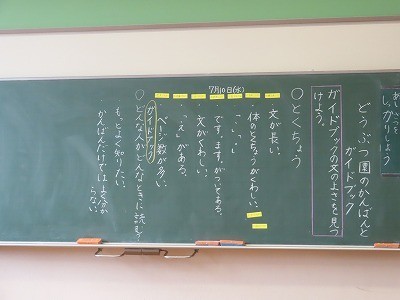 あいさつを
しっかりしよう
7月10日(水)
どうぶつ園のかんばんと
ガイドブック
ガイドブックの文のよさを見つ
けよう。
○とくちょう
文が長い。
体のとくちょうがくわしい。
「」、。
です。ます。がついてある。
文がくわしい。
「え」がある。
ページ数が多い。
ガイドブック
○どんな人がどんなときに読む?
もっとよく知りたい。
かんばんだけでは
らない。